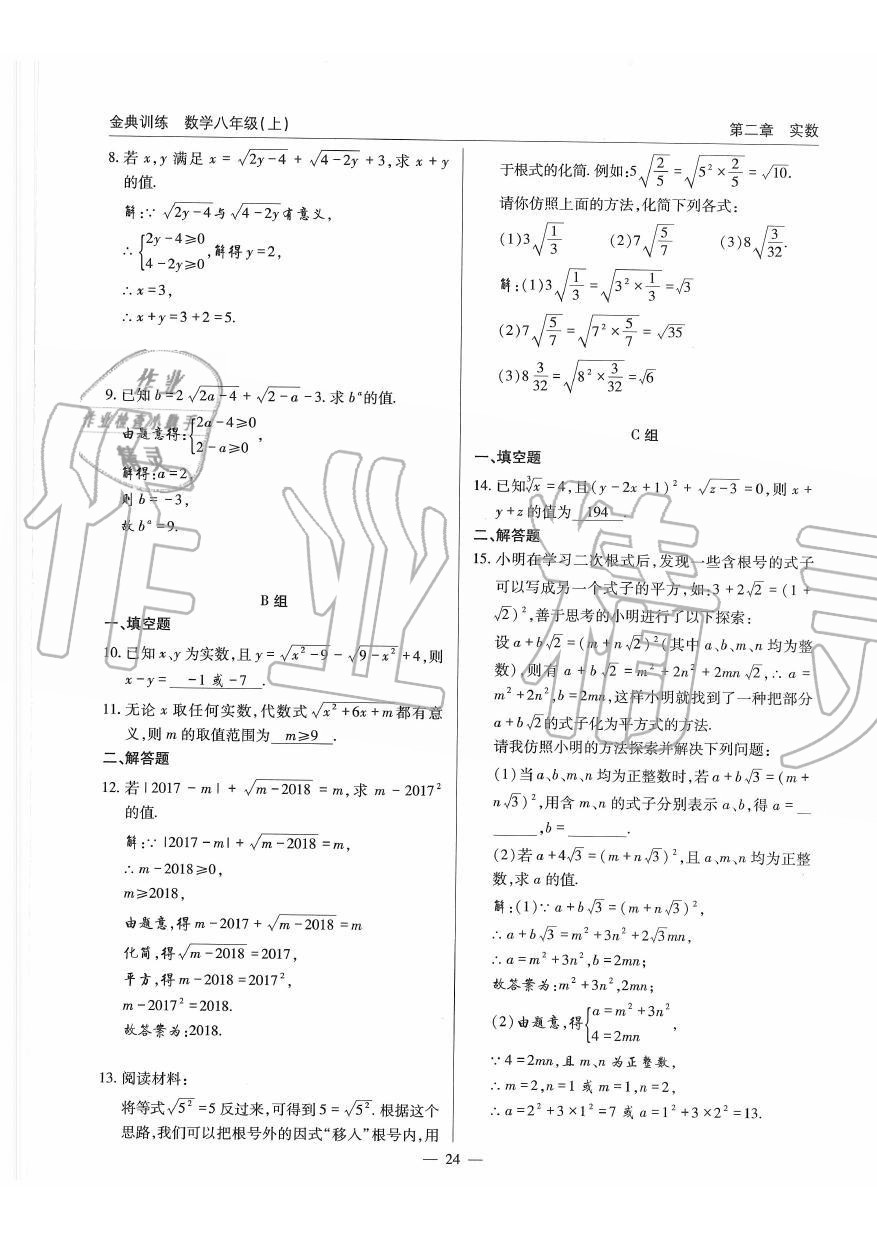 金典训练 数学八年级(上)
第二章 实数
8. 若 x,y 满足 x = √(2y-4) + √(4-2y) + 3,求 x + y
的值.
解:∵ √(2y-4)与√(4-2y)有意义,
∴ {2y-4≥0
4-2y≥0,解得 y=2,
∴ x=3,
∴ x+y=3+2=5.
9. 已知 b=2√(2a-4) + √(2-a) - 3. 求 bᵃ的值.
由题意得:{2a-4≥0
2-a≥0,
解得:a=2,
则 b=-3,
故 bᵃ=9.
B 组
一、填空题
10. 已知 x、y 为实数,且 y = √(x²-9) - √(9-x²) + 4,则
x-y= -1 或 -7 .
11. 无论 x 取任何实数,代数式 √(x²+6x+m) 都有意
义,则 m 的取值范围为 m≥9 .
二、解答题
12. 若 |2017-m| + √(m-2018) = m,求 m-2017²
的值.
解:∵ |2017-m| + √(m-2018) = m,
∴ m-2018≥0,
m≥2018,
由题意,得 m-2017+√(m-2018) = m
化简,得√(m-2018) = 2017,
平方,得 m-2018=2017²,
m-2017²=2018.
故答案为:2018.
13. 阅读材料:
将等式√(5²) = 5 反过来,可得到 5 = √(5²). 根据这个
思路,我们可以把根号外的因式“移人”根号内,用
于根式的化简. 例如:5√(2/5) = √(5²×2/5) = √10.
请你仿照上面的方法,化简下列各式:
(1)3√(1/3) (2)7√(5/7) (3)8√(3/32).
解:(1)3√(1/3) = √(3²×1/3) = √3
(2)7√(5/7) = √(7²×5/7) = √35
(3)8 3/32 = √(8²×3/32) = √6
C 组
一、填空题
14. 已知∛x = 4,且(y-2x+1)² + √(z-3) = 0,则 x+
y+z 的值为 194 .
二、解答题
15. 小明在学习二次根式后,发现一些含根号的式子
可以写成另一个式子的平方,如:3+2√2=(1+
√2)²,善于思考的小明进行了以下探索:
设 a+b√2=(m+n√2)²(其中 a、b、m、n 均为整
数),则有 a+b√2=m²+2n²+2mn√2,∴ a=
m²+2n²,b=2mn,这样小明就找到了一种把部分
a+b√2的式子化为平方式的方法.
请我仿照小明的方法探索并解决下列问题:
(1)当 a、b、m、n 均为正整数时,若 a+b√3=(m+
n√3)²,用含 m、n 的式子分别表示 a、b,得 a=__
______,b=________.
(2)若 a+4√3=(m+n√3)²,且 a、m、n 均为正整
数,求 a 的值.
解:(1)∵ a+b√3=(m+n√3)²,
∴ a+b√3=m²+3n²+2√3mn,
∴ a=m²+3n²,b=2mn;
故答案为:m²+3n²,2mn;
(2)由题意,得{a=m²+3n²
4=2mn,
∵ 4=2mn,且 m、n 为正整数,
∴ m=2,n=1 或 m=1,n=2,
∴ a=2²+3×1²=7 或 a=1²+3×2²=13.
— 24 —
作业精灵
作业
作业检查小助手
精灵